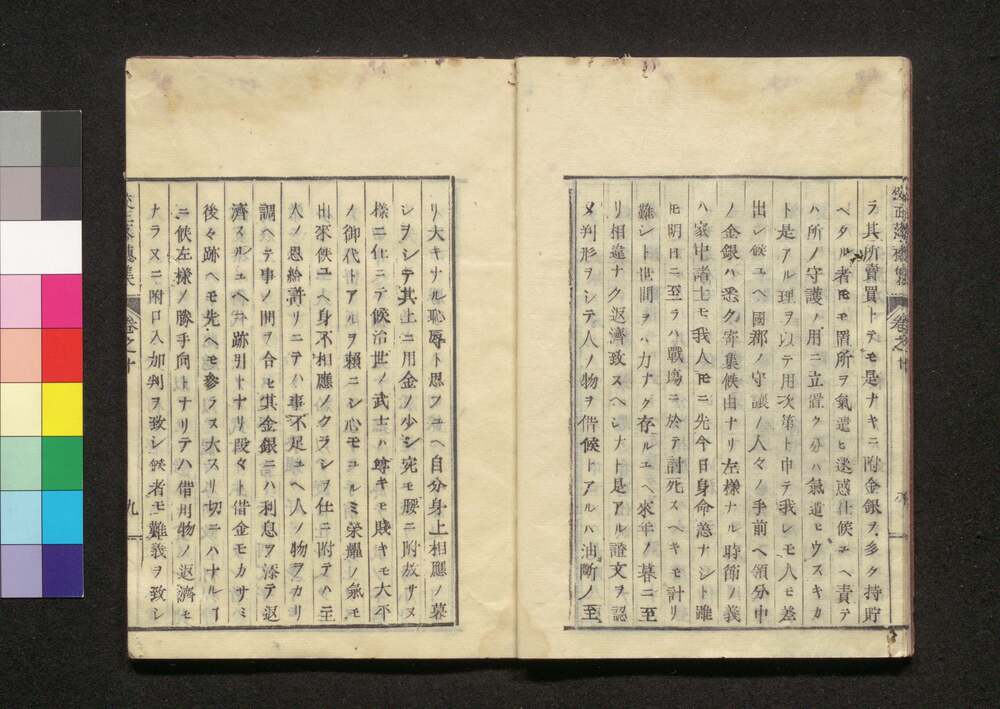 校正落穗集
卷之十
ラ其所賣買トテモ是ナキニ附金銀ヲ多ク持貯
ヘタル者𪜈モ置所ヲ氣遣ヒ迷惑仕候ユヘ責テ
ハ所ノ守護ノ用ニ立置ク分ハ氣遣ヒウスキカ
ト是アル理ヲ以テ用次第ト申テ我レモ人モ差
出シ候ユヘ國郡ノ守護ノ人々ノ手前ヘ領分中
ノ金銀ハ悉ク寄集候由ナリ左樣ナル時節ノ義
ハ家中諸士モ我人𪜈ニ先今日身命恙ナシト雖
𪜈明日ニ至ラハ戰塲ニ於テ討死スヘキモ計リ
難シト世間ヲハカナク存ルユヘ來年ノ暮ニ至
リ相違ナク返濟致スヘシナト是アル證文ヲ認
メ判形ヲシテ人ノ物ヲ借候トアルハ油斷ノ至
リ大キナル恥辱ト思フユヘ自分身上相應ノ暮
シヲシテ其上ニ用金ノ少シ宛モ腰ニ附放サヌ
樣ニ仕ニテ候治世ノ武士ハ尊キモ賤キモ大平
ノ御代トアルヲ賴ニシ心モユルミ榮耀ノ氣モ
出來候ユヘ身不相應ノクラシヲ仕ニ附テハ主
人ノ恩給計リニテハ事不足ユヘ人ノ物ヲカリ
調ヘテ事ノ間ヲ合セ其金銀ニハ利息ヲ添テ返
濟スルユヘニ跡引トナリ段々ト借金モカサミ
後々跡ヘモ先ヘモ參ラス大スリ切ニハナルヿ
ニ候左樣ノ勝手向トナリテハ借用物ノ返濟モ
ナラヌニ附口入加判ヲ致シ候者モ難義ヲ致シ
卷之十
九